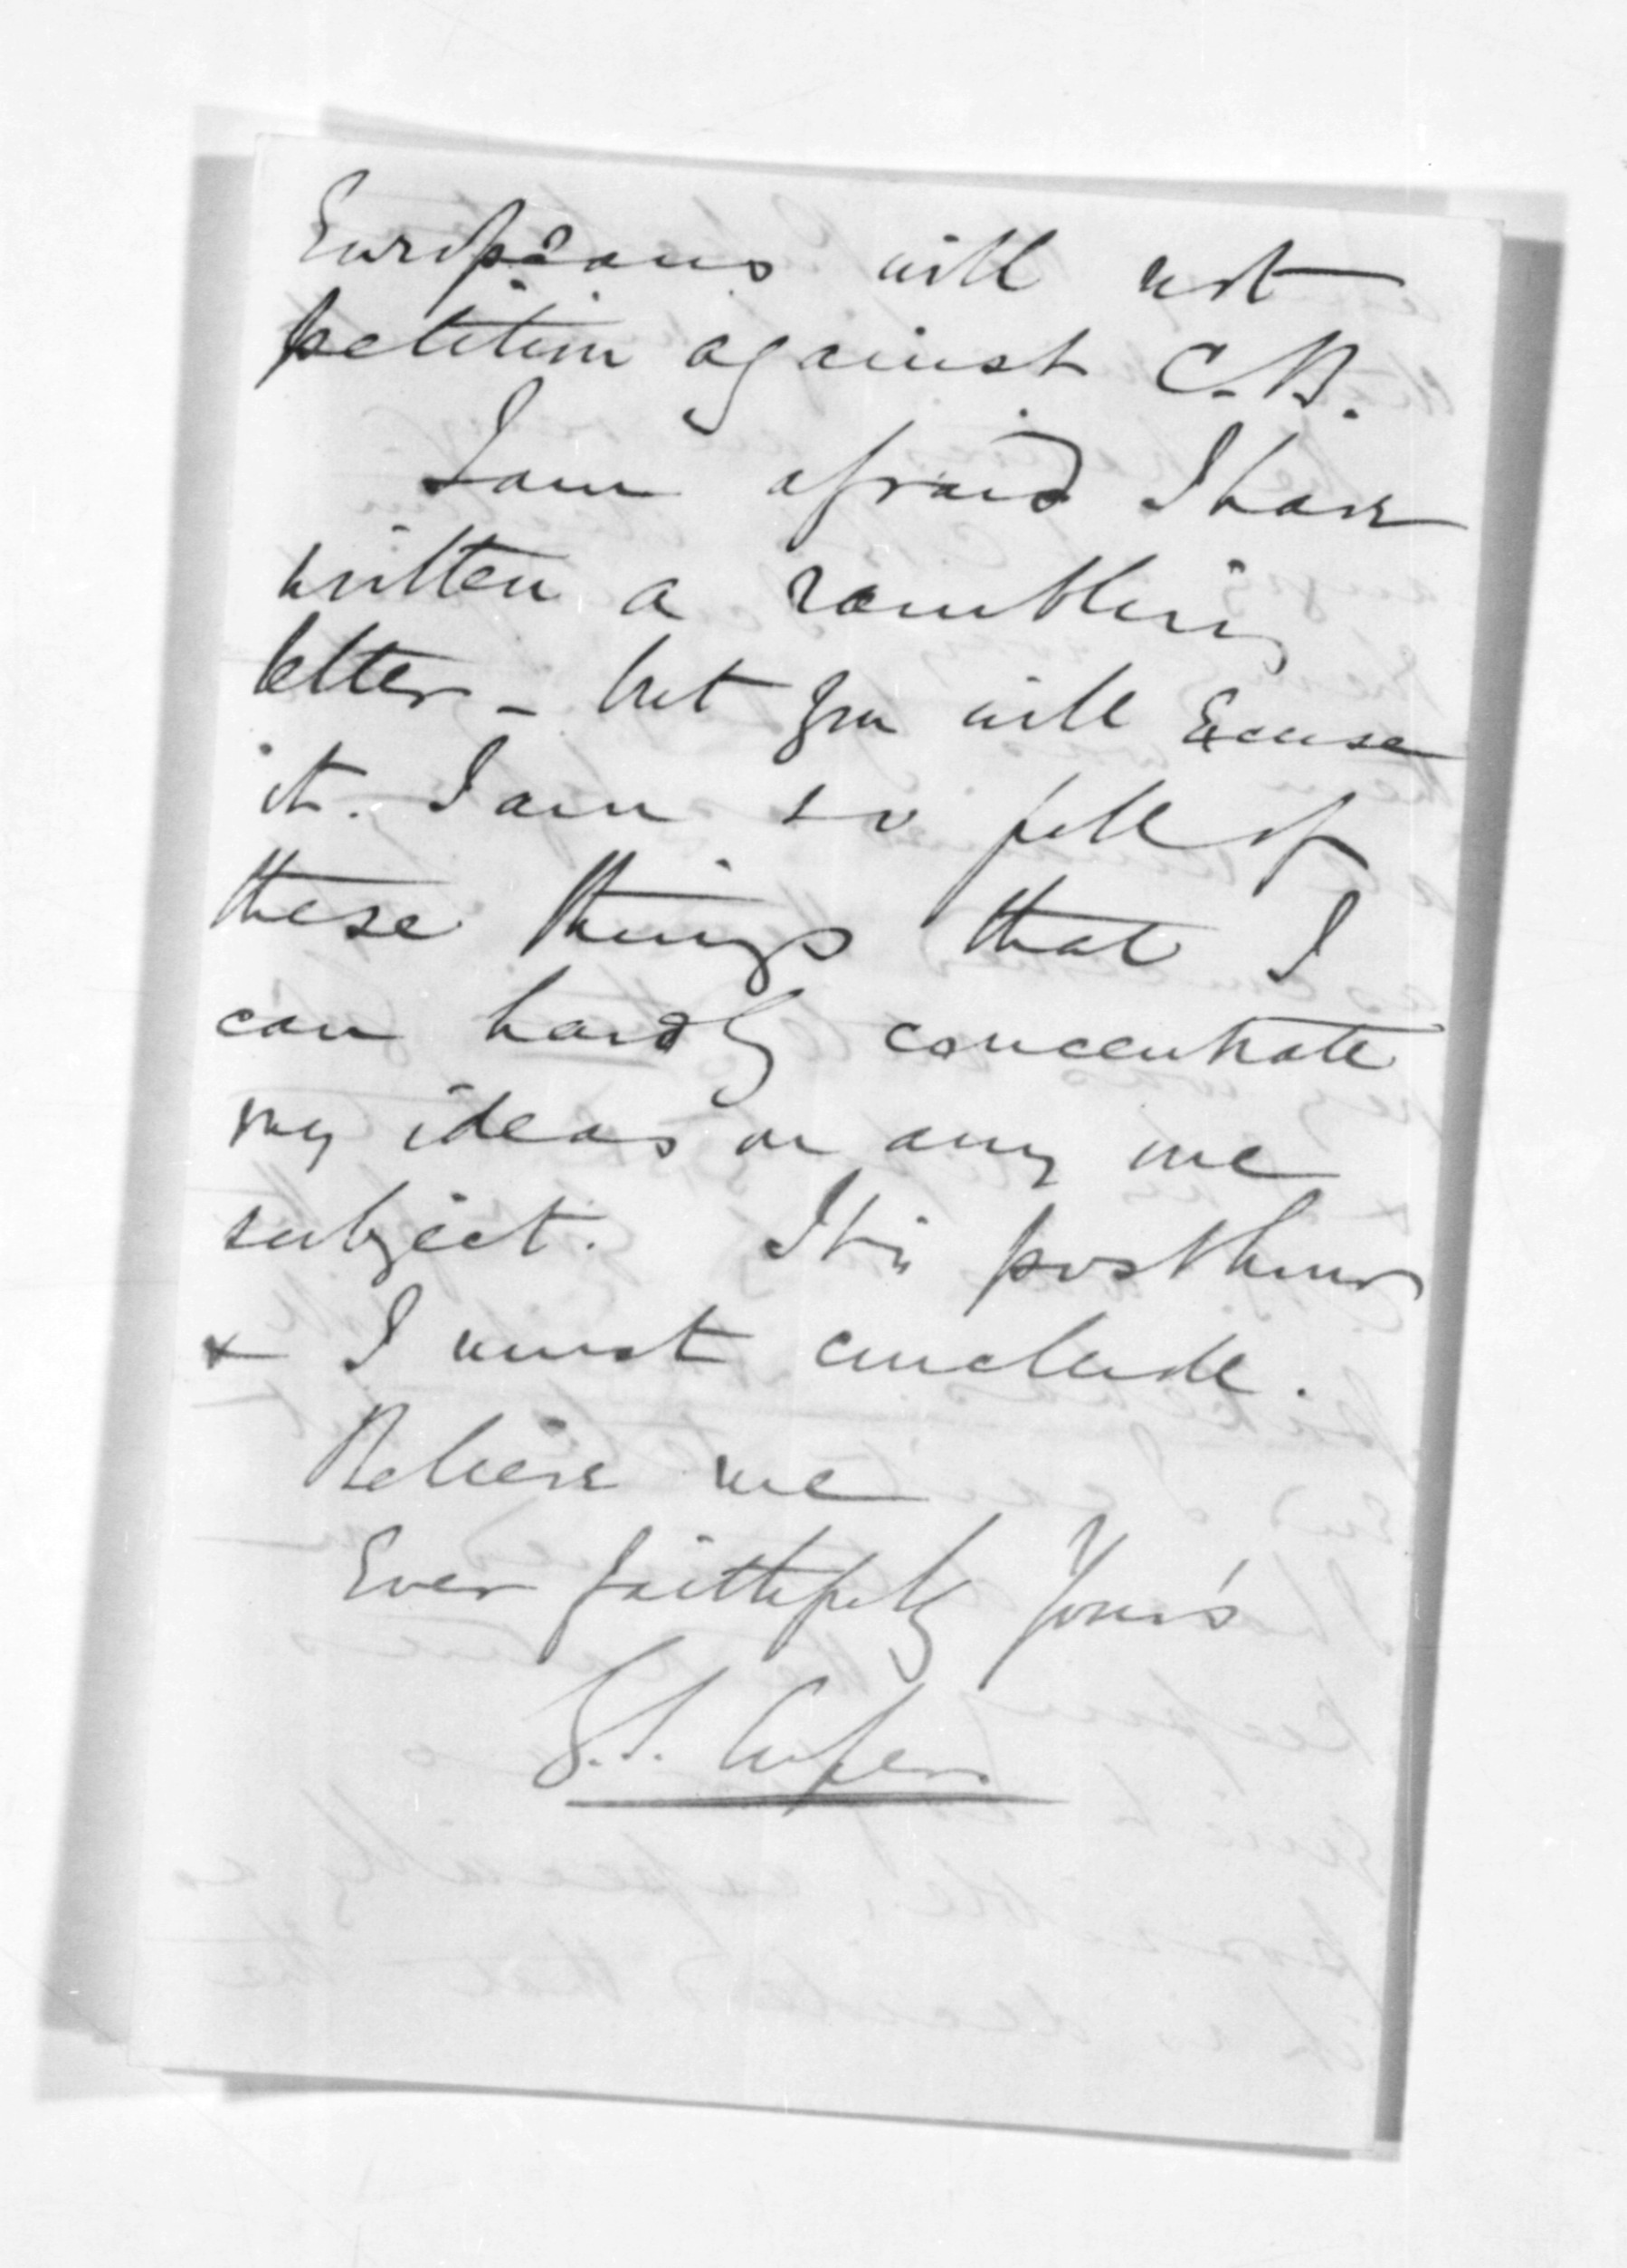 Europeans will not
petition against C.B.
I am afraid I have
written a rambling
letter - but you will Excuse
it. I am so full of
these things that I
can hardly concentrate
my ideas on any one
subject. It is post hour
& I must conclude.
Believe me
Ever faithfully Your's
G.S. Cooper